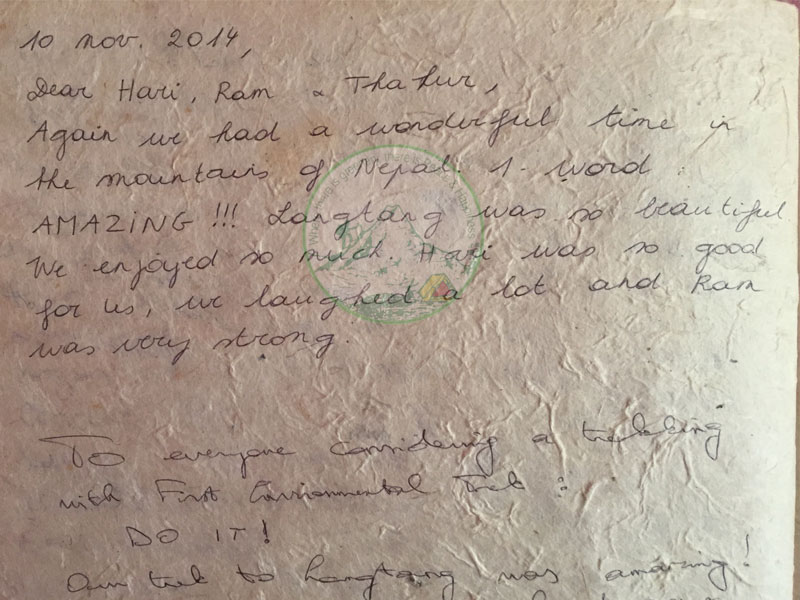 10 nov. 2014,
Dear Hari, Ram & Thakur,
Again we had a wonderful time in
the mountains of Nepal. 1 word:
AMAZING!!! Langtang was so beautiful.
We enjoyed so much. Hari was so good
for us, we laughed a lot and Ram
was very strong.
To everyone considering a trekking
with First Environmental Trek :
DO IT!
Our trek to Langtang was amazing!